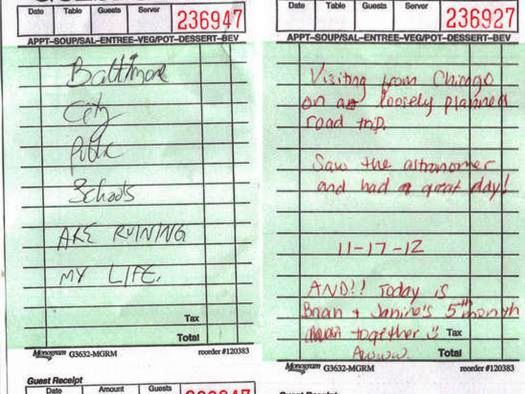 Date Table Guests Server
236947
APPT-SOUP/SAL-ENTREE-VEG/POT-DESSERT-BEV
Baltimore
City
Public
Schools
ARE RUINING
MY LIFE.
Tax
Total
Monogram G3632-MGRM reorder #120383
Guest Receipt
Date Amount Guests
Date Table Guests Server
236927
APPT-SOUP/SAL-ENTREE-VEG/POT-DESSERT-BEV
Visiting from Chicago
on a loosely planned
road trip.
Saw the astronomer
and had a great day!
11-17-12
AND!! Today is
Brian + Janine's 5th month
together Tax
Awww. Total
Monogram G3632-MGRM reorder #120383